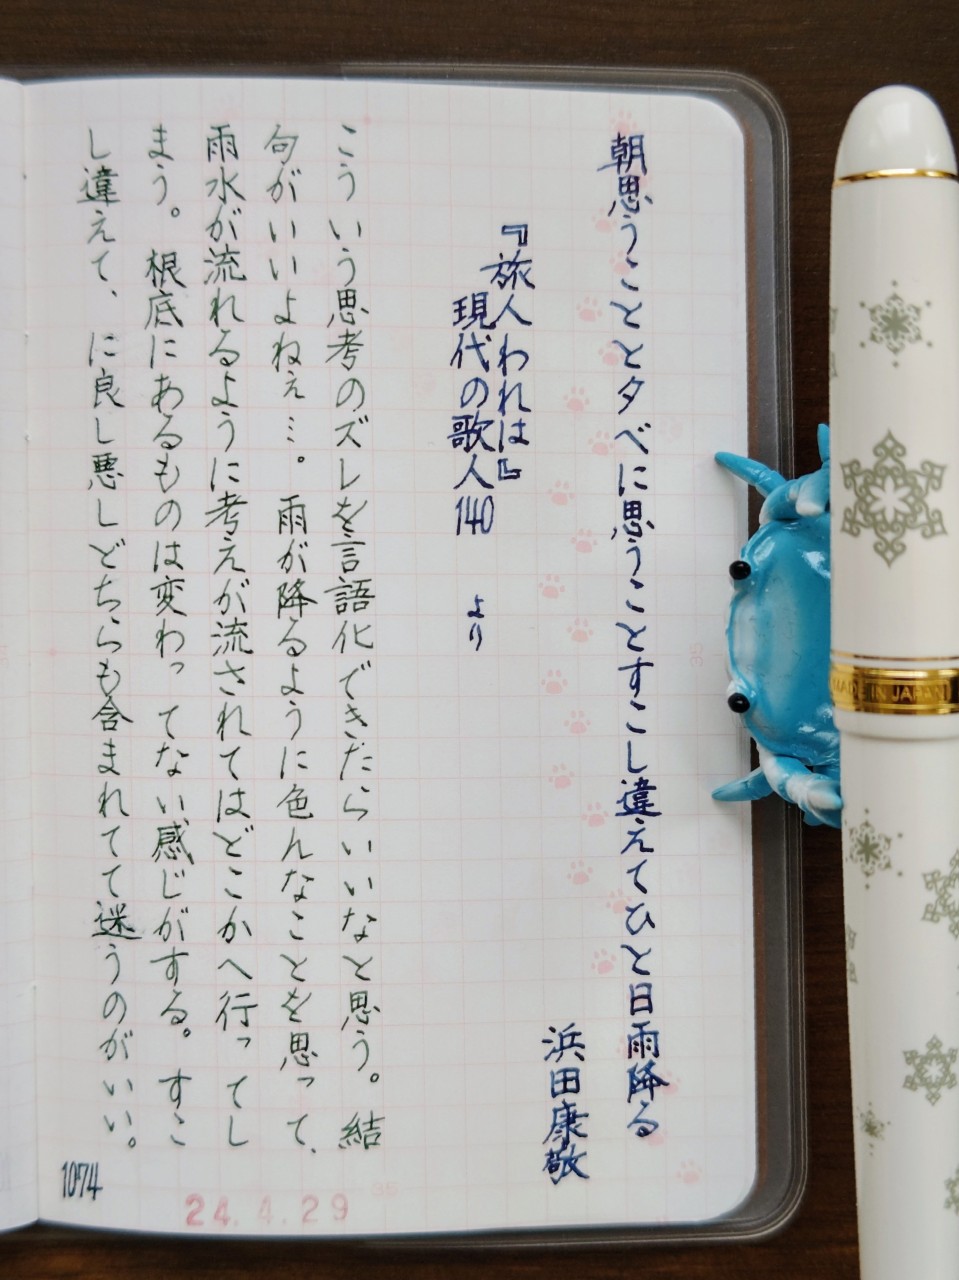 朝思うことと夕べに思うことすこし違えてひと日雨降る
浜田康敬
『旅人われは』
現代の歌人140 より
こういう思考のズレを言語化できたらいいなと思う。結
句がいいよねぇ…。雨が降るように色んなことを思って、
雨水が流れるように考えが流されてはどこかへ行ってし
まう。根底にあるものは変わってない感じがする。すこ
し違えて、に良し悪しどちらも含まれてて迷うのがいい。
1074
24.4.29
35
35
MADE IN JAPAN